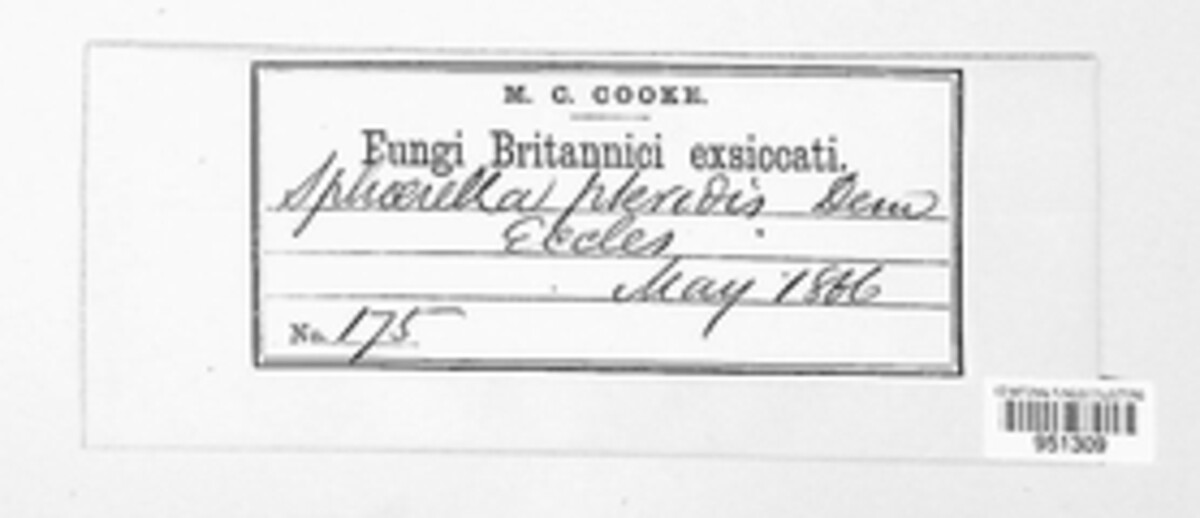 M. C. COOKE.
Fungi Britannici exsiccati.
Sphærella pteridis Desm
Eccles
May 1866
No. 175
951309